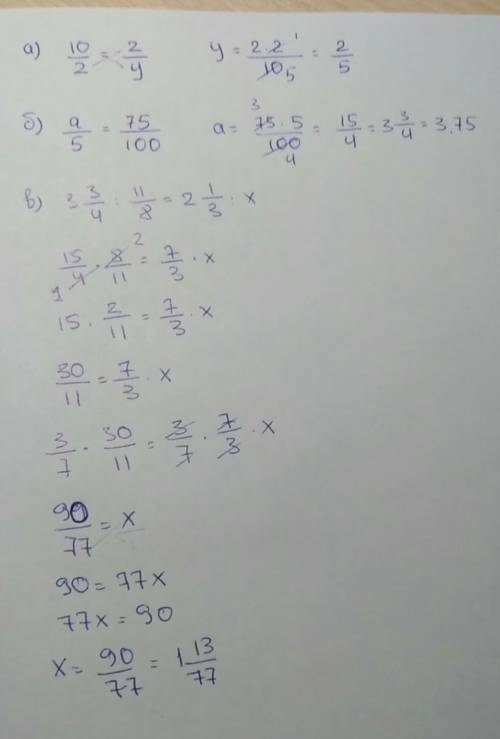 а) 10/2 = 2/y y = 2·2/10 5 1 = 2/5
б) a/5 = 75/100 a = 3 75·5/100 4 = 15/4 = 3 3/4 = 3,75
в) 3 3/4 : 11/8 = 2 1/3 · x
15/4 1 · 8/11 2 = 7/3 · x
15 · 2/11 = 7/3 · x
30/11 = 7/3 · x
3/7 · 30/11 = 3/7 · 7/3 · x
90/77 = x
90 = 77x
77x = 90
x = 90/77 = 1 13/77